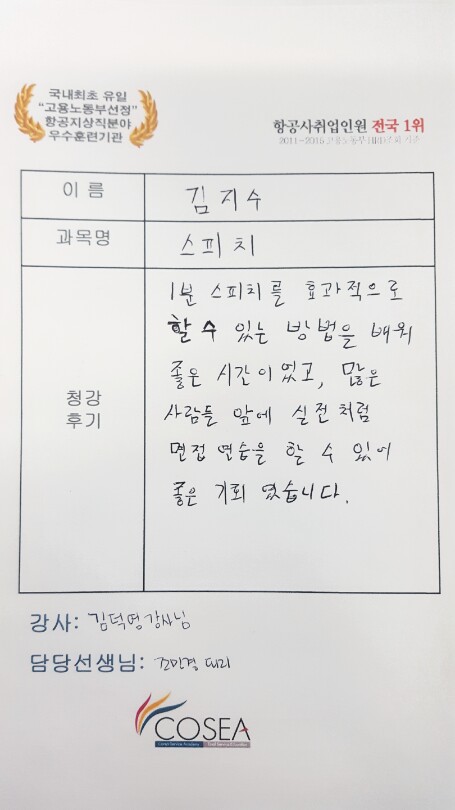 국내최초 유일
"고용노동부선정"
항공지상직분야
우수훈련기관
항공사취업인원 전국 1위
이 름
김지수
과목명
스피치
청강
후기
1분 스피치를 효과적으로
할 수 있는 방법을 배워
좋은 시간이였고, 많은
사람들 앞에 실전처럼
면접 연습을 할 수 있어
좋은 기회 였습니다.
강사: 김덕영강사님
담당선생님: 조민경 대리
COSEA